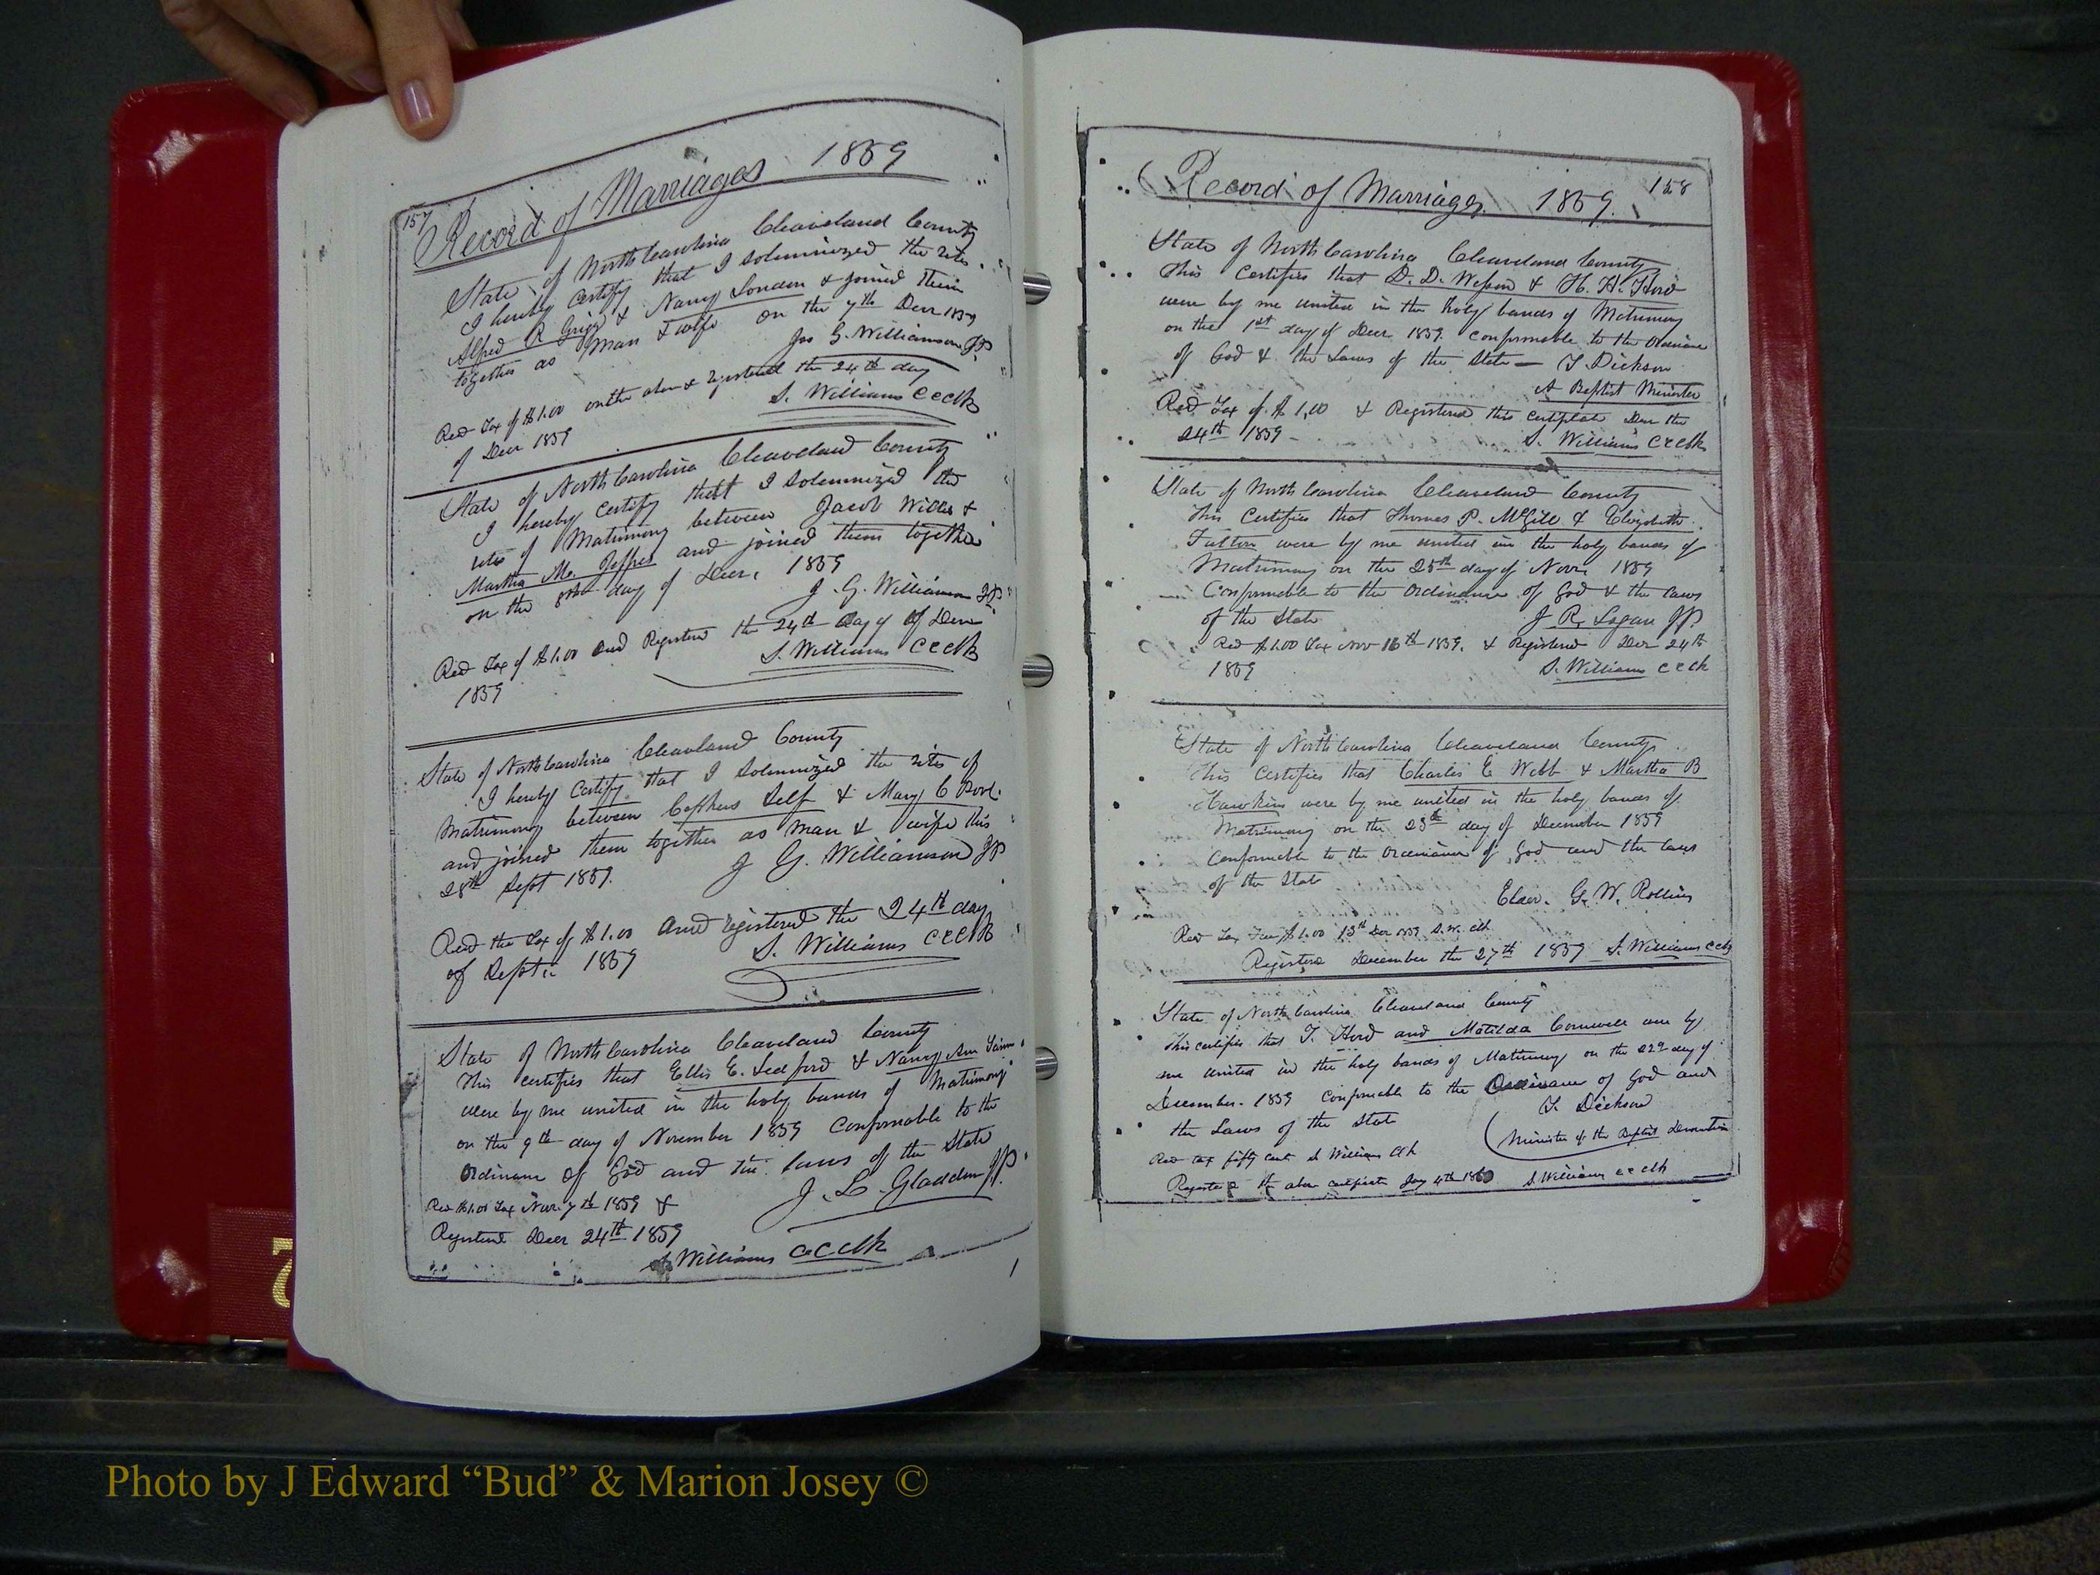 157 Record of Marriages 1859
State of North Carolina Cleaveland County
I hereby certify that I solemnized the rites
Alfred R Grigg & Nancy London & joined them
together as man & wife on the 7th Decr 1859
Jno G. Williamson JP
Recd Tax of $1.00 on the above & registered the 24th day
of Decr 1859
S. Williams CCClk
State of North Carolina Cleaveland County
I hereby certify that I solemnized the
rites of Matrimony between Jacob Willis &
Martha M. and joined them together
on the day of Decr. 1859
J. G. Williamson JP
Recd Tax of $1.00 and Registered the 24th Day of Decr
1859
S. Williams CCClk
State of North Carolina Cleaveland County
I hereby certify that I solemnized the rites of
Matrimony between Cephus Self & Mary C
and joined them together as man & wife this
28th Sept 1859.
J G. Williamson JP
Recd the Tax of $1.00 and registered the 24th day
of Sept. 1859
S. Williams CCClk
State of North Carolina Cleaveland County
This certifies that Ellis E. Ledford & Nancy Ann
were by me united in the holy bands of Matrimony
on the 9th day of November 1859 Conformable to the
Ordinance of God and the laws of the State
J. L. Gladden JP.
Recd $1.00 Tax Novr 7th 1859 &
Registered Decr 24th 1859
S Williams CCClk
Record of Marriages 1859. 158
State of North Carolina Cleaveland County
This Certifies that D. D. Wesson & H. H. Hord
were by me united in the holy bands of Matrimony
on the 1st day of Decr 1859 conformable to the Ordinance
of God & the Laws of the State — T. Dickson
A Baptist Minister
Recd Tax of $1,00 & Registered this certificate Decr the
24th 1859 - S. Williams CCClk
State of North Carolina Cleaveland County
This Certifies that Thomas P. McGill & Elizabeth
Falton were by me united in the holy bands of
Matrimony on the 25th day of Novr. 1859
Conformable to the Ordinance of God & the laws
of the State J. R. Logan JP
Recd $1.00 Tax Nov 16th 1859. & Registered Decr 24th
1859 S. Williams CCClk
State of North Carolina Cleaveland County
This certifies that Charles E Webb & Martha B
Hawkins were by me united in the holy bands of
Matrimony on the 25th day of December 1859
Conformable to the Ordinance of God and the laws
of the State
Elder. G. W. Rollins
Recd Tax Fee $1.00 13th Decr 1859 S. W. Clk
Registered December the 27th 1859 S. Williams CCClk
State of North Carolina Cleaveland County
This certifies that T. Hord and Matilda Cornwell were by
me united in the holy bands of Matrimony on the 22d day of
December. 1859 Conformable to the Ordinance of God and
the Laws of the State T. Dickson
Minister of the Baptist
Recd tax fifty cents S Williams Clk
Registered the above certificate Jany 4th 1860 S Williams CCClk
Photo by J Edward “Bud” & Marion Josey ©